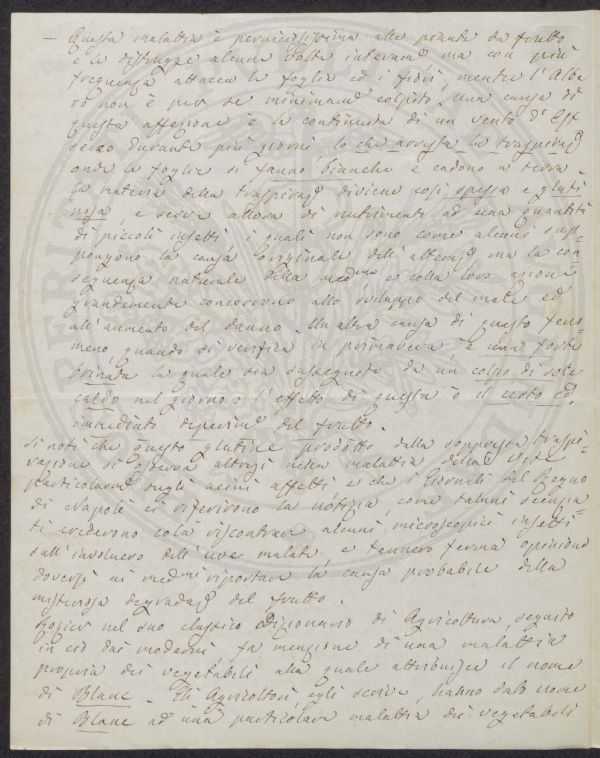 — Questa malattia è perniciosissima alle piante da frutto
e le distrugge alcune volte interam.e ma con più
frequenza attacca le foglie ed i fiori, mentre l'Albe
ro non è per se minimam.e colpito. Una causa di
questa affezione è la continuità di un vento d'Est
secco durante più giorni, lo che arresta la traspiraz.
onde le foglie si fanno bianche e cadono a terra.
La materia della traspiraz. diviene così spessa e gluti
nosa, e serve allora di nutrimento ad una quantità
di piccoli insetti i quali non sono come alcuni sup=
pongono la causa originale dell'affez., ma la con
seguenza naturale della med.ma e colla loro azione
grandemente concorrono allo sviluppo del male ed
all'aumento del danno. Un altra causa di questo feno=
meno, quando si verifica in primavera è una forte
brinata la quale sia susseguita da un colpo di sole
caldo nel giorno e l'effetto di questa è il certo ed
immediato del frutto.
Si noti che questo glutine prodotto dalla soppressa traspi=
razione si osserva altresì nella malattia della Vite
particolarm.e sugli acini affetti, e che i Giornali del Regno
di Napoli ci riferirono la notizia, come taluni
ti crederono colà riscontrare alcuni microscopici insetti
sull'involucro dell'uve malate e tennero ferma opinione
doversi ai med.mi riportare la causa probabile della
misteriosa degradaz. del frutto.
Rozier nel suo classico Dizionario di Agricoltura, seguito
in ciò dai moderni fa menzione di una malattia
propria dei vegetabili alla quale attribuisce il nome
di Blanc. Gli Agricoltori egli scrive, hanno dato nome
di Blanc ad una particolare malattia dei vegetabili